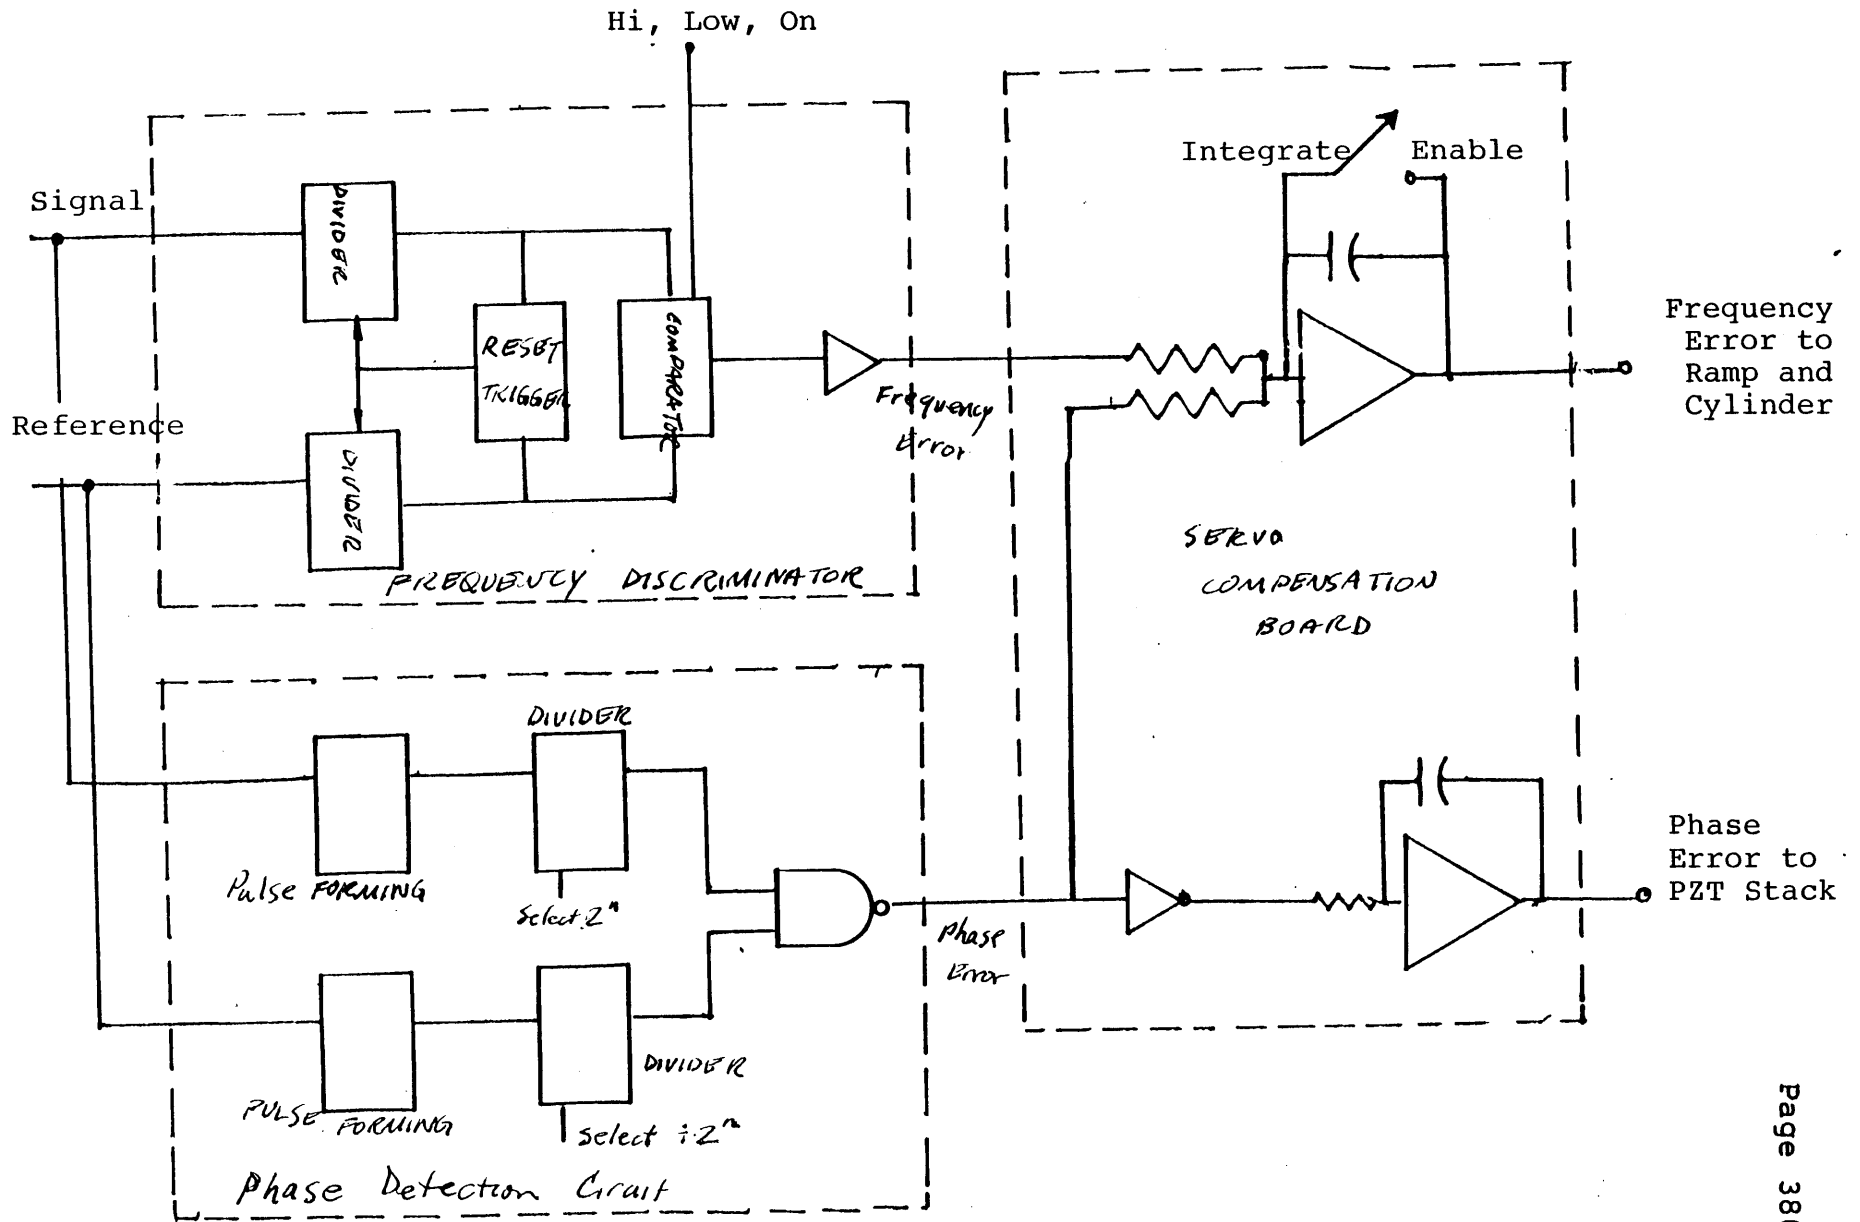 Hi, Low, On
Signal
Reference
DIVIDER
DIVIDER
RESET
TRIGGER
COMPARATOR
Frequency
Error
FREQUENCY DISCRIMINATOR
Integrate Enable
Frequency
Error to
Ramp and
Cylinder
SERVO
COMPENSATION
BOARD
DIVIDER
Pulse FORMING
Select 2ⁿ
Phase
Error
Phase
Error to
PZT Stack
PULSE FORMING
DIVIDER
Select ÷2ⁿ
Phase Detection Circuit
Page